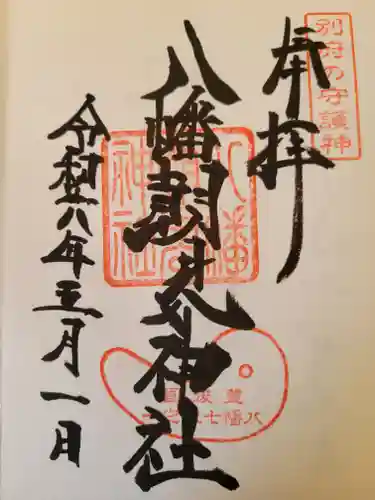 別府の守護神
奉拝
八幡朝見神社
八幡朝見神社
豊後国
八幡七
令和六年五月一日